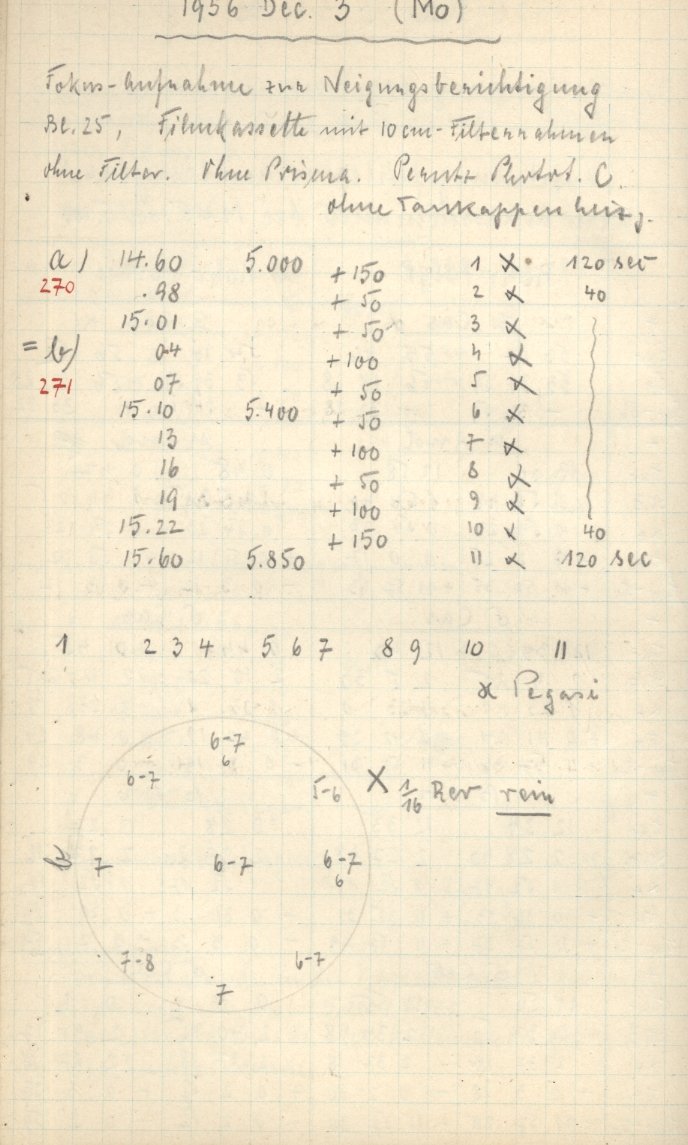 1956 Dec. 3 (Mo)
Fokus-Aufnahme zur Neigungsberichtigung
Bl. 25, Filmkassette mit 10 cm-Filterrahmen
ohne Filter. Ohne Prisma. Perutz Photot. C.
ohne Taukappenheizg.
a) 14.60 5.000 +150 1 x 120 sec
270 .98 + 50 2 x 40
15.01 + 50 3 x
= b) 04 +100 4 x
271 07 + 50 5 x
15.10 5.400 + 50 6 x
13 +100 7 x
16 + 50 8 x
19 +100 9 x
15.22 +150 10 x 40
15.60 5.850 11 x 120 sec
1 2 3 4 5 6 7 8 9 10 11
α Pegasi
6-7
6
6-7
5-6 X 1/16 Rev rein
b) 7 6-7 6-7
6
7-8 6-7
7